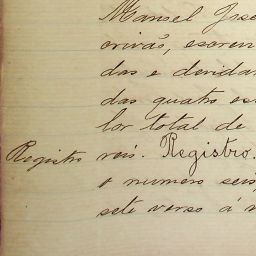 Manoel José
crivão, escrev
das e devida
das quatro es
lor total de
Registro reis. Registro.
o numero seis
sete verso á